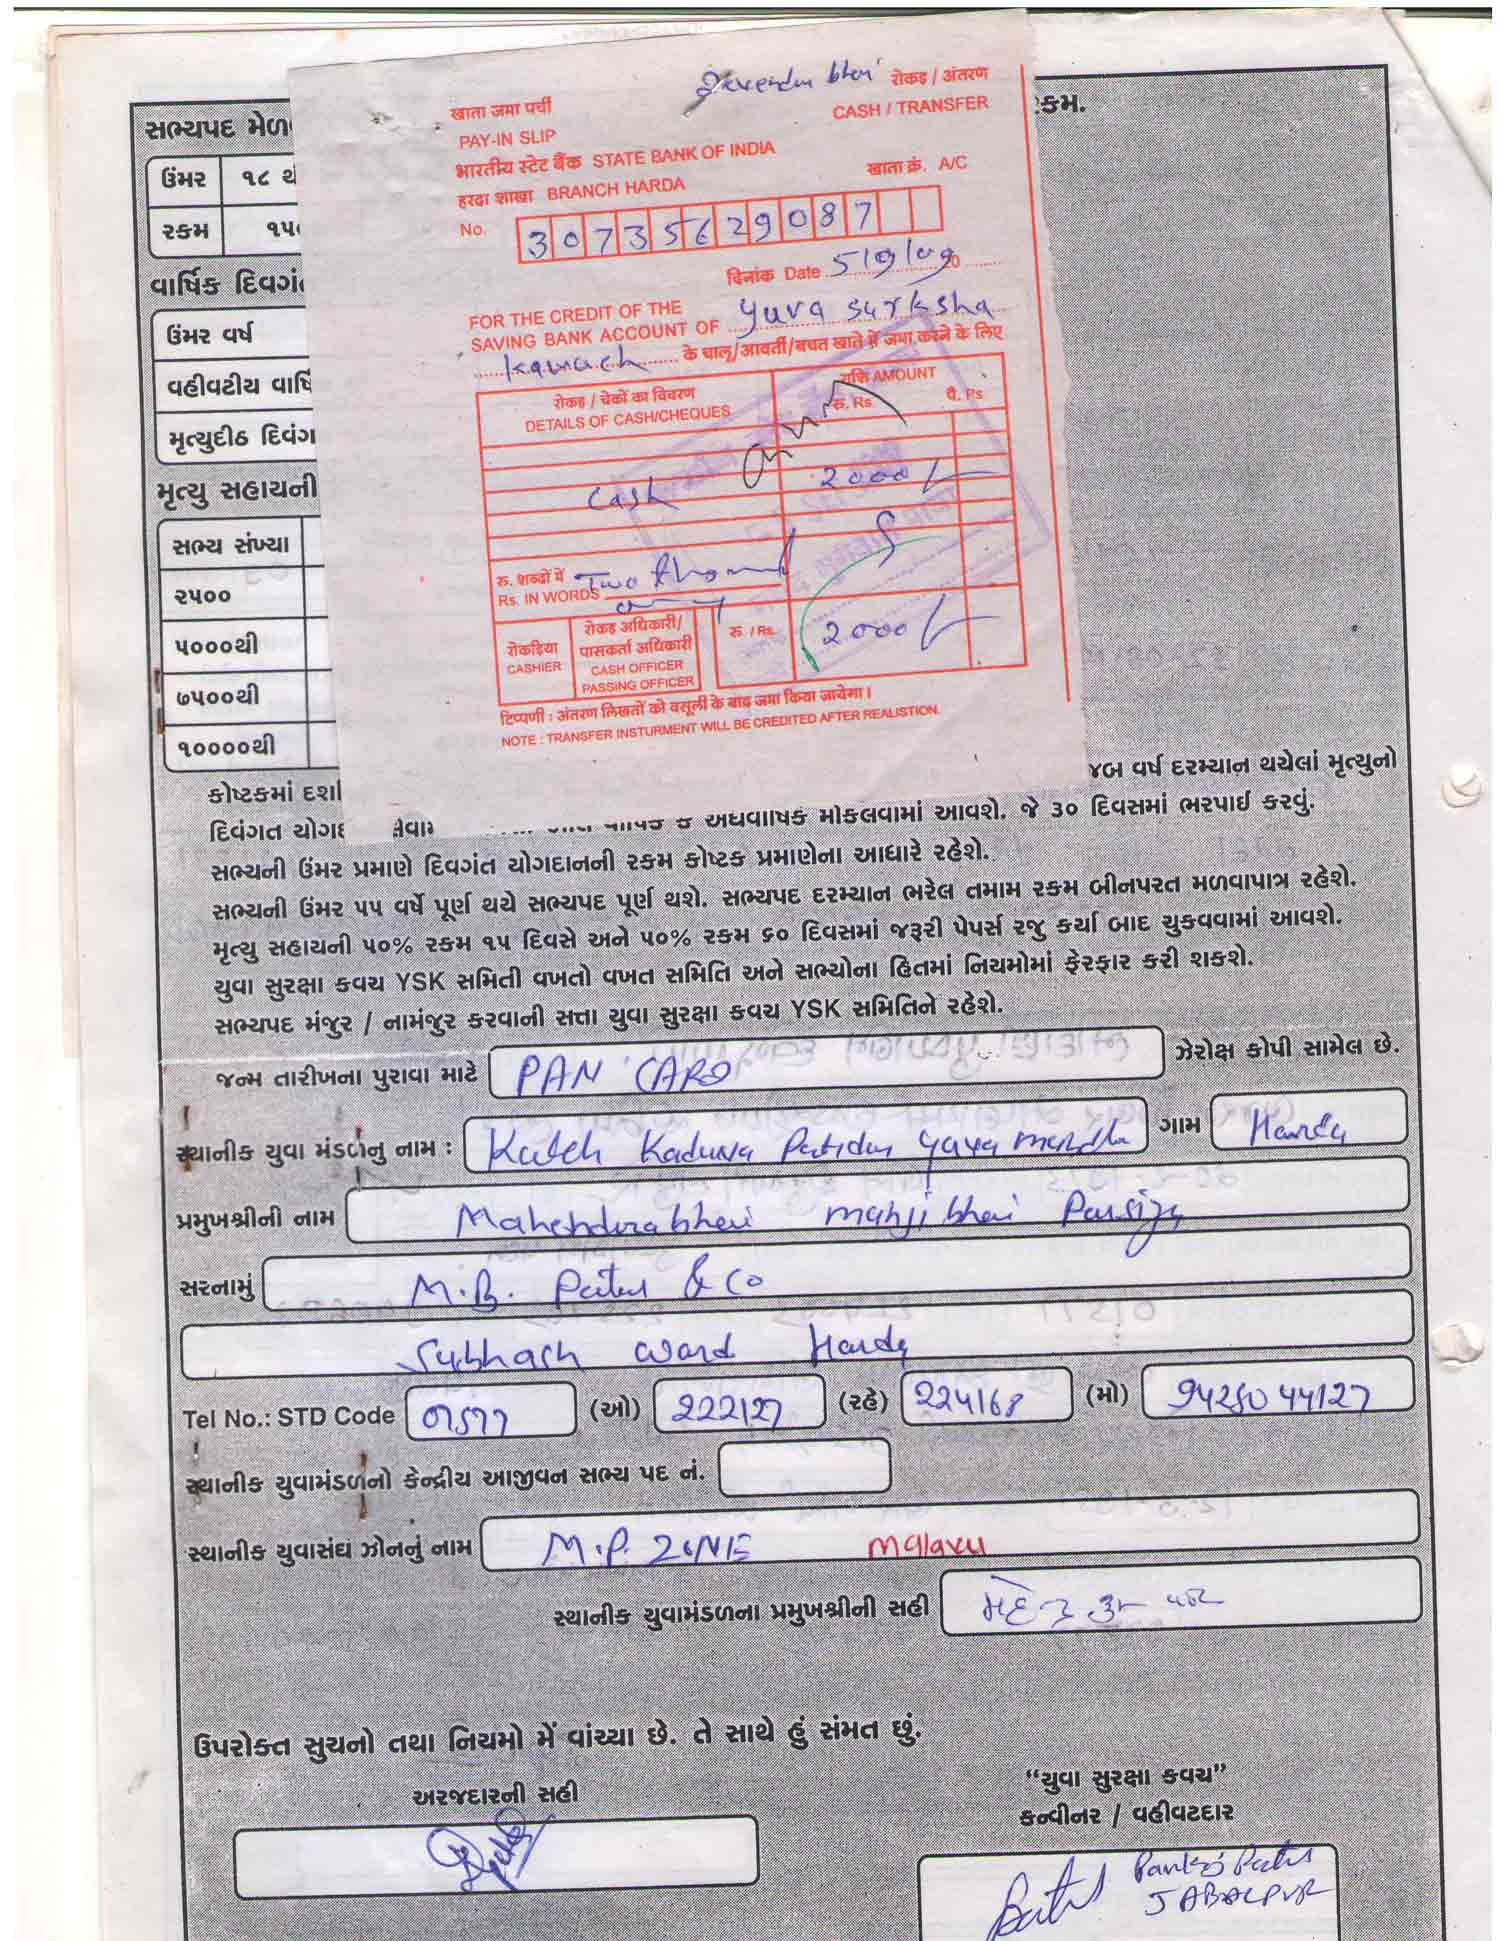 Devendra bhai रोकड / अंतरण
खाता जमा पर्ची CASH / TRANSFER
PAY-IN SLIP
भारतीय स्टेट बैंक STATE BANK OF INDIA
हरदा शाखा BRANCH HARDA खाता क्रं. A/C
No. 30735629087
दिनांक Date 5/9/09
FOR THE CREDIT OF THE
SAVING BANK ACCOUNT OF Yuva Surksha
Kavach के चालू/आवर्ती/बचत खाते में जमा करने के लिए
रोकड / चेकों का विवरण राशि AMOUNT
DETAILS OF CASH/CHEQUES रु. Rs पै. Ps
Cash 2000/-
रु. शब्दों में Two thousand
Rs. IN WORDS only
रोकड़िया रोकड अधिकारी/ रु. / Rs. 2000/-
CASHIER पासकर्ता अधिकारी
CASH OFFICER
PASSING OFFICER
टिप्पणी : अंतरण लिखतों को वसूली के बाद जमा किया जायेगा।
NOTE : TRANSFER INSTURMENT WILL BE CREDITED AFTER REALISTION.
સભ્યપદ મેળ
ઉંમર ૧૮ થ
રકમ ૧૫૦
વાર્ષિક દિવગં
ઉંમર વર્ષ
વહીવટીય વાર્ષિ
મૃત્યુદીઠ દિવંગ
મૃત્યુ સહાયની
સભ્ય સંખ્યા
૨૫૦૦
૫૦૦૦થી
૭૫૦૦થી
૧૦૦૦૦થી
કોષ્ટકમાં દર્શા વર્ષ દરમ્યાન થયેલાં મૃત્યુનો
દિવંગત અર્ધવાર્ષિક મોકલવામાં આવશે. જે ૩૦ દિવસમાં ભરપાઈ કરવું.
સભ્યની ઉંમર પ્રમાણે દિવગંત યોગદાનની રકમ કોષ્ટક પ્રમાણેના આધારે રહેશે.
સભ્યની ઉંમર ૫૫ વર્ષે પૂર્ણ થયે સભ્યપદ પૂર્ણ થશે. સભ્યપદ દરમ્યાન ભરેલ તમામ રકમ બીનપરત મળવાપાત્ર રહેશે.
મૃત્યુ સહાયની ૫૦% રકમ ૧૫ દિવસે અને ૫૦% રકમ ૬૦ દિવસમાં જરૂરી પેપર્સ રજુ કર્યા બાદ ચુકવવામાં આવશે.
યુવા સુરક્ષા કવચ YSK સમિતી વખતો વખત સમિતિ અને સભ્યોના હિતમાં નિયમોમાં ફેરફાર કરી શકશે.
સભ્યપદ મંજુર / નામંજુર કરવાની સત્તા યુવા સુરક્ષા કવચ YSK સમિતિને રહેશે.
જન્મ તારીખના પુરાવા માટે PAN CARD ઝેરોક્ષ કોપી સામેલ છે.
સ્થાનીક યુવા મંડળનુ નામ : Kutch Kaduva Patidar yuva mandal ગામ Harda
પ્રમુખશ્રીની નામ Mahendrabhai manjibhai Parsiya
સરનામું M.B. Patel & Co
Subhash ward Harda
Tel No.: STD Code 07577 (ઓ) 222127 (રહે) 224168 (મો) 9425044127
સ્થાનીક યુવામંડળનો કેન્દ્રીય આજીવન સભ્ય પદ નં.
સ્થાનીક યુવાસંઘ ઝોનનું નામ M.P. ZONE Malavu
સ્થાનીક યુવામંડળના પ્રમુખશ્રીની સહી
ઉપરોક્ત સુચનો તથા નિયમો મેં વાંચ્યા છે. તે સાથે હું સંમત છું.
અરજદારની સહી
“યુવા સુરક્ષા કવચ”
કન્વીનર / વહીવટદાર
Pankaj Patel
JABALPUR